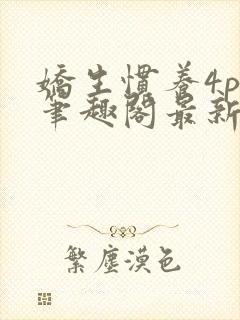 嬌生慣養4p
筆趣閣最新
繁塵漠色